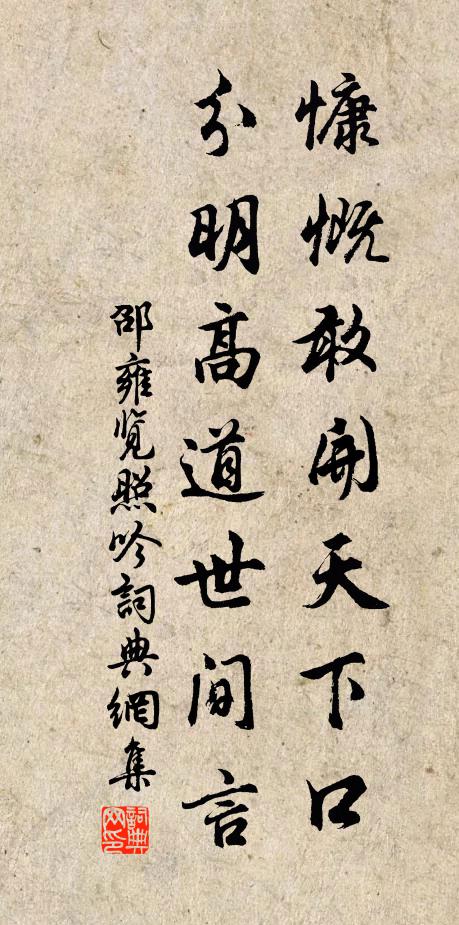 慷慨敢開天下口
分明高道世間言
邵雍覽照吟詞典網集
詞典網印